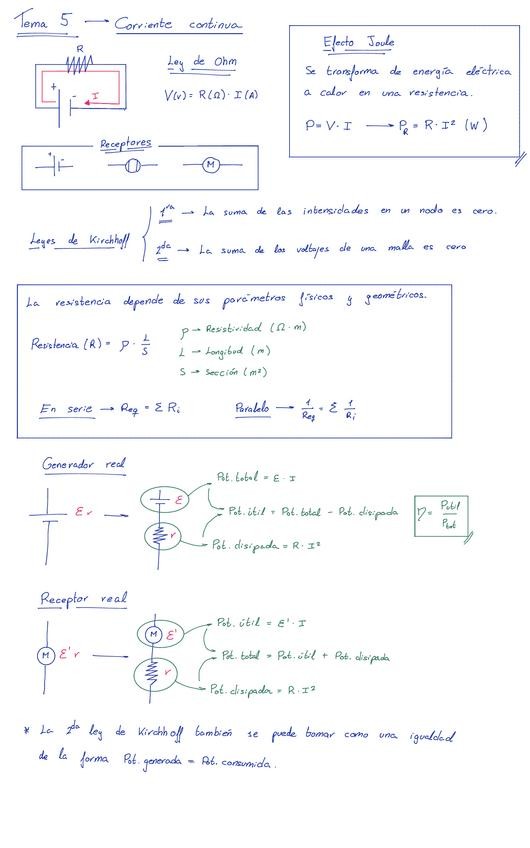 Tema 5 → Corriente continua
R
+ -
I
Ley de Ohm
V(v) = R(Ω) · I(A)
Efecto Joule
Se transforma de energía eléctrica
a calor en una resistencia.
P = V · I → P_R = R · I² (W)
Receptores
+ -
M
Leyes de Kirchhoff
1ra → La suma de las intensidades en un nodo es cero.
2da → La suma de los voltajes de una malla es cero
La resistencia depende de sus parámetros físicos y geométricos.
Resistencia (R) = ρ · L/S
ρ → Resistividad (Ω · m)
L → Longitud (m)
S → Sección (m²)
En serie → Req = Σ Ri
Paralelo → 1/Req = Σ 1/Ri
Generador real
ε r
ε
r
Pot. total = ε · I
Pot. útil = Pot. total - Pot. disipada
Pot. disipada = R · I²
η = Pútil/Ptot
Receptor real
M ε' r
M ε'
r
Pot. útil = ε' · I
Pot. total = Pot. útil + Pot. disipada
Pot. disipada = R · I²
* La 2da ley de Kirchhoff también se puede tomar como una igualdad
de la forma Pot. generada = Pot. consumida.